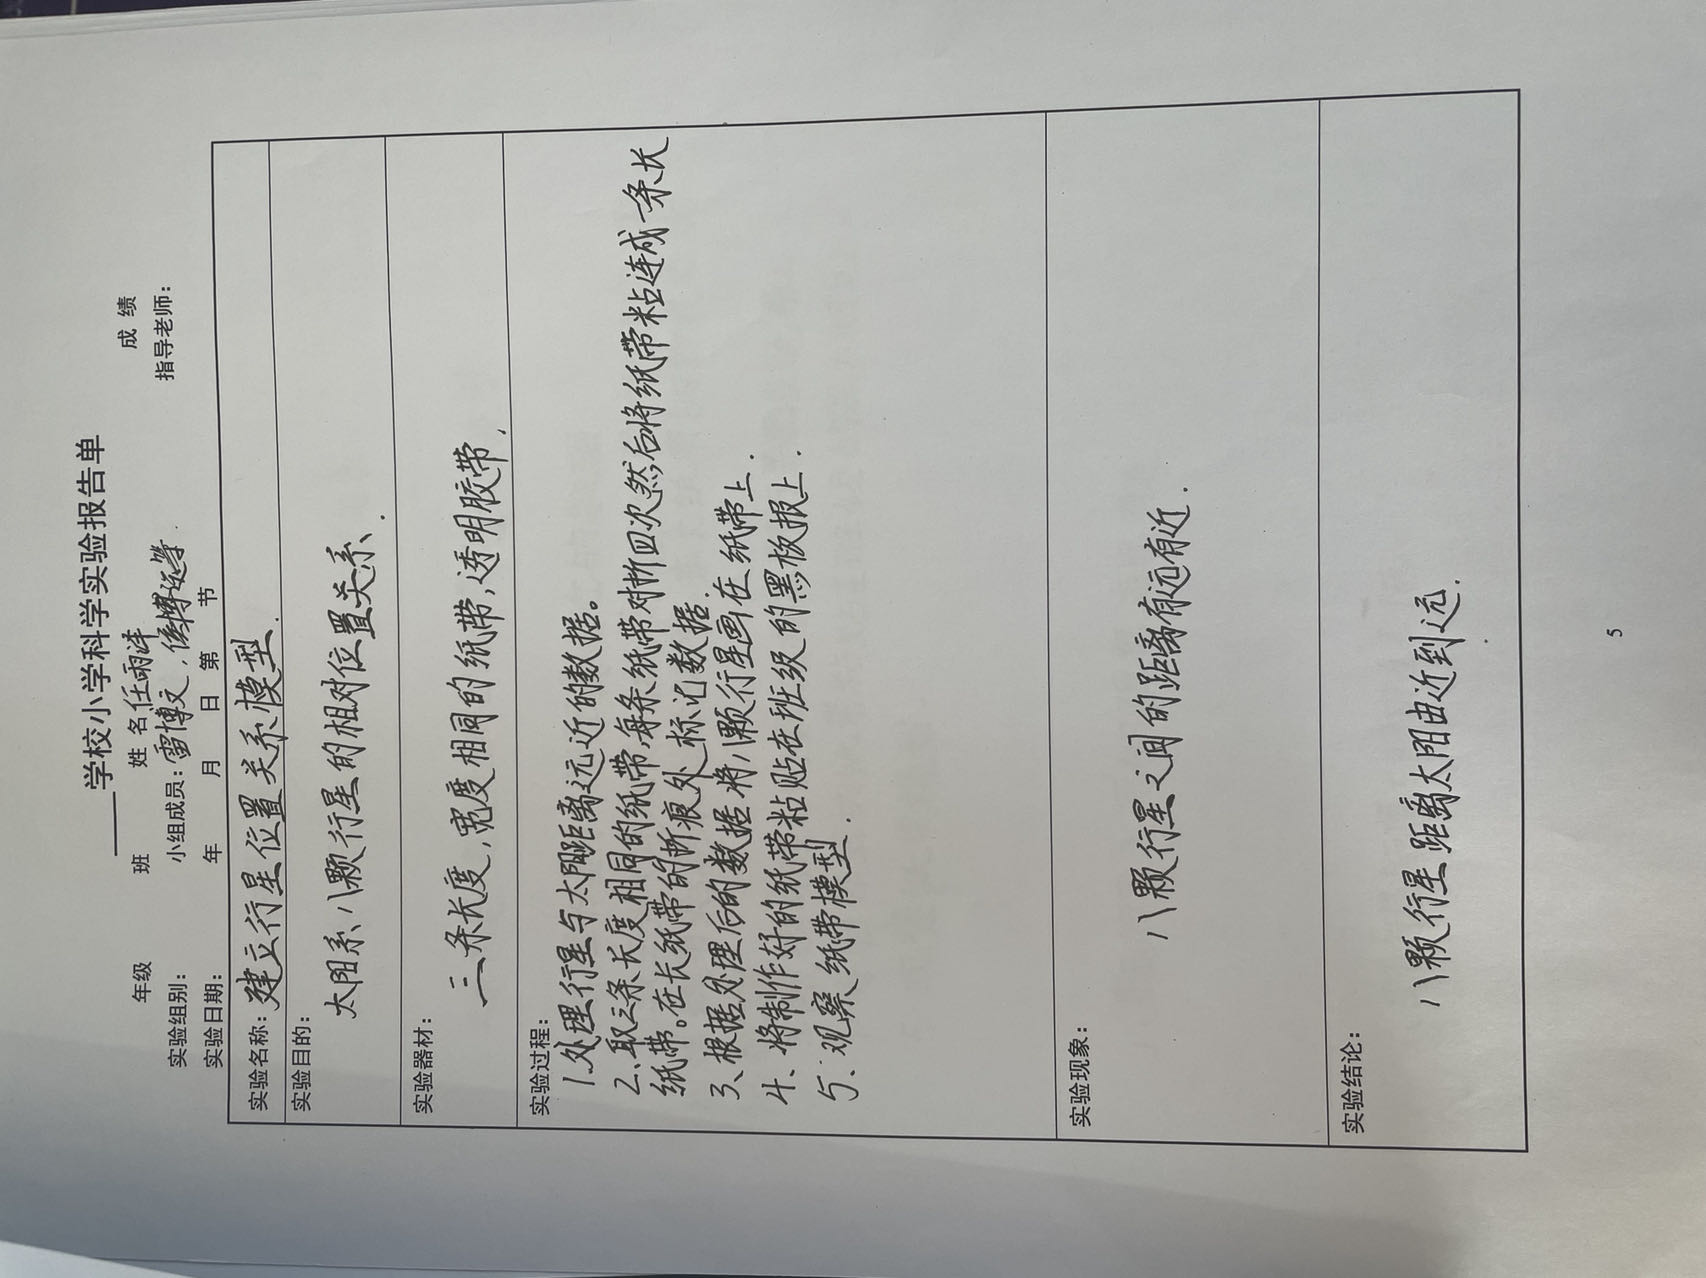 学校小学科学实验报告单
年级 班 姓名 任雨洋 成绩
实验组别: 小组成员: 雷博文, 侯博远等. 指导老师:
实验日期: 年 月 日 第 节
实验名称: 建立行星位置关系模型.
实验目的:
太阳系八颗行星的相对位置关系.
实验器材:
三条长度,宽度相同的纸带,透明胶带.
实验过程:
1.处理行星与太阳距离远近的数据。
2、取三条长度相同的纸带,每条纸带对折四次然后将纸带粘连成一条长
纸带。在长纸带的折痕处标记数据.
3、根据处理后的数据将八颗行星画在纸带上.
4、将制作好的纸带粘贴在班级的黑板报上.
5、观察纸带模型.
实验现象:
八颗行星之间的距离有远有近.
实验结论:
八颗行星距离太阳由近到远.
5